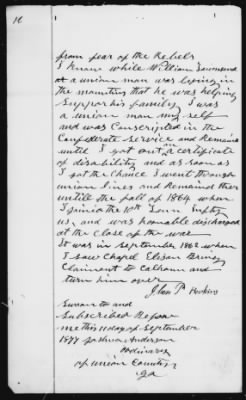 16
from fear of the Rebels
I know while William Townsend
at a union man was lying in
the mountins that he was helping
Support his family I was
a union man my self
and was Conscripted in the
Confederate Service and remain
until I got out on Certificate
of disability and as soon as
I got the Chance I went through
union lines and Remained ther
untill the fall of 1864 when
I joined the 10th Tenn
us, and was honorable discharged
at the Close of the war
It was in September 1862 when
I saw Chapel Elison Bring
Claimant to Calhoun and
turn him over
John P Perkins
Sworn to and
Subscribed Before
me this 11 day of September
1877 Joshua Anderson
Ordinary
of union County
Ga